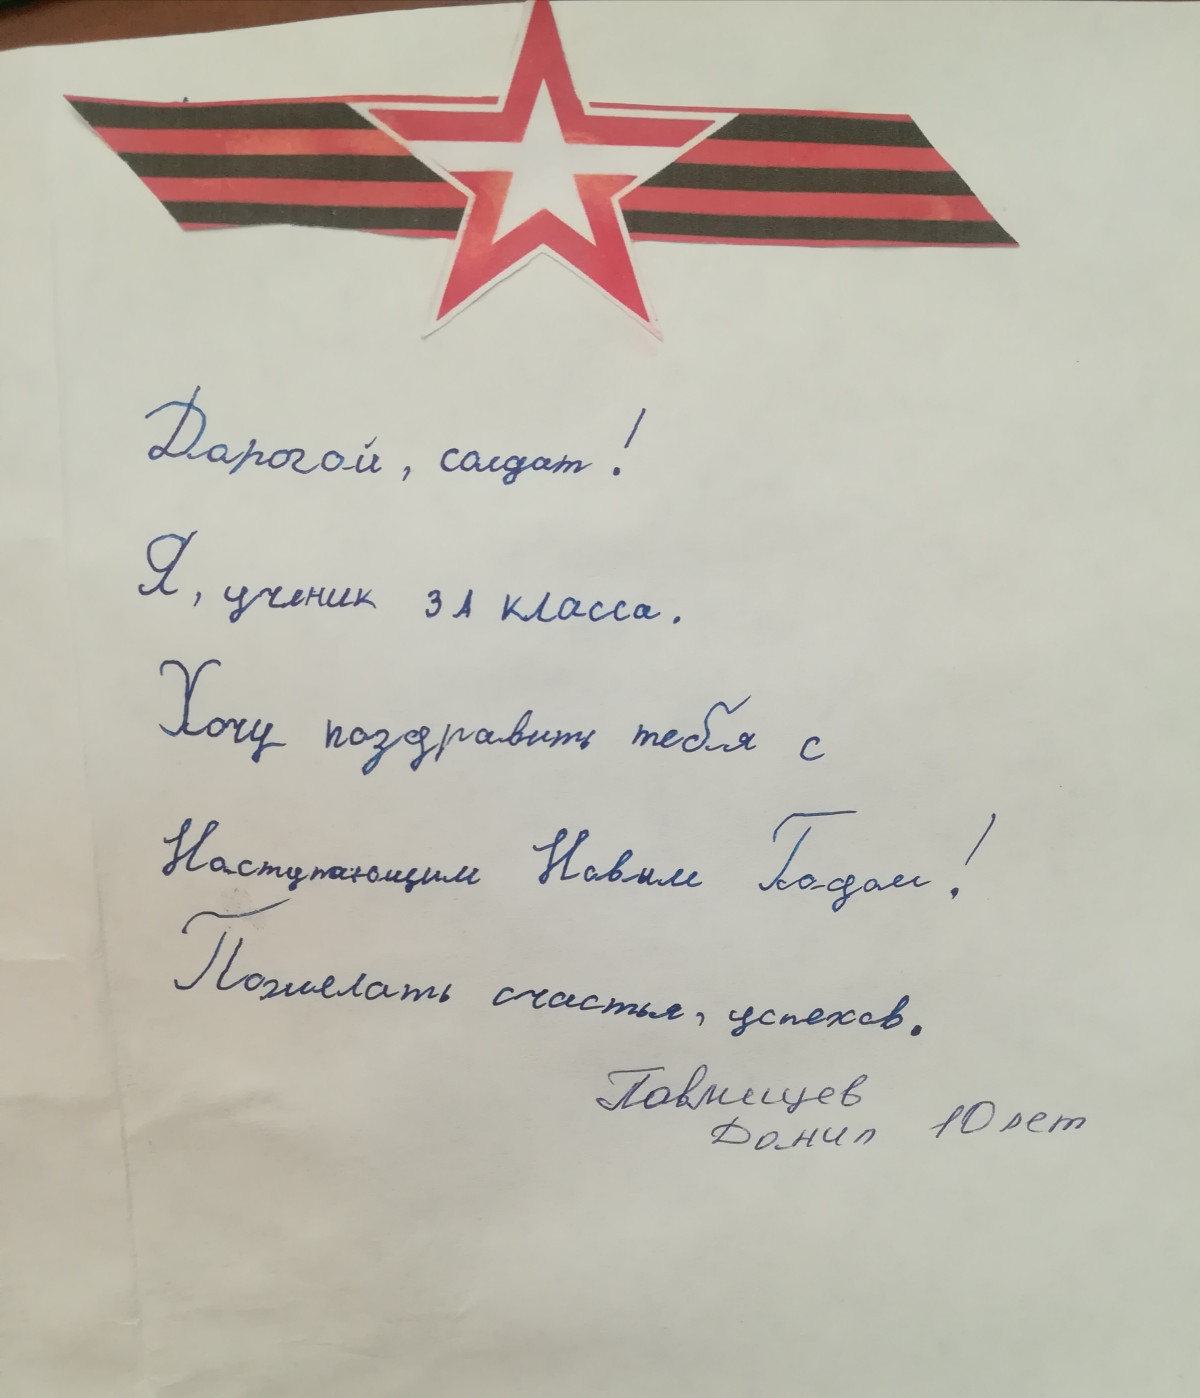 Дарогой, солдат!
Я, ученик 3А класса.
Хочу поздравить тебя с
Наступающим Новым Годом!
Пожелать счастья, успехов.
Данил 10 лет